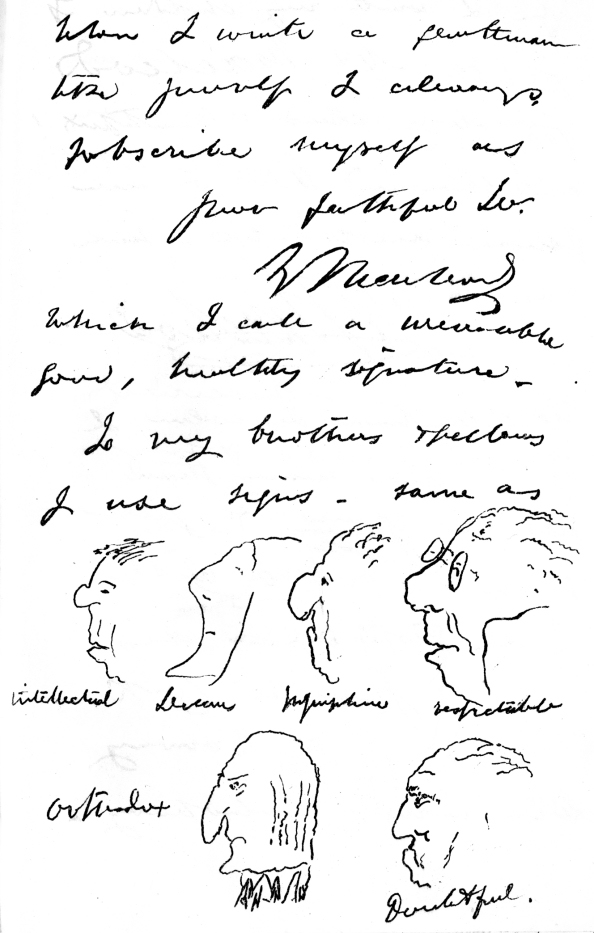 When I write a gentleman
like yourself I always
subscribe myself as
your faithful Sv.
N Macleod
Which I call a
good, healthy signature.
To my brothers & fellows
I use signs - same as
intellectual
Inquisitive respectable
Orthodox
Doubtful.